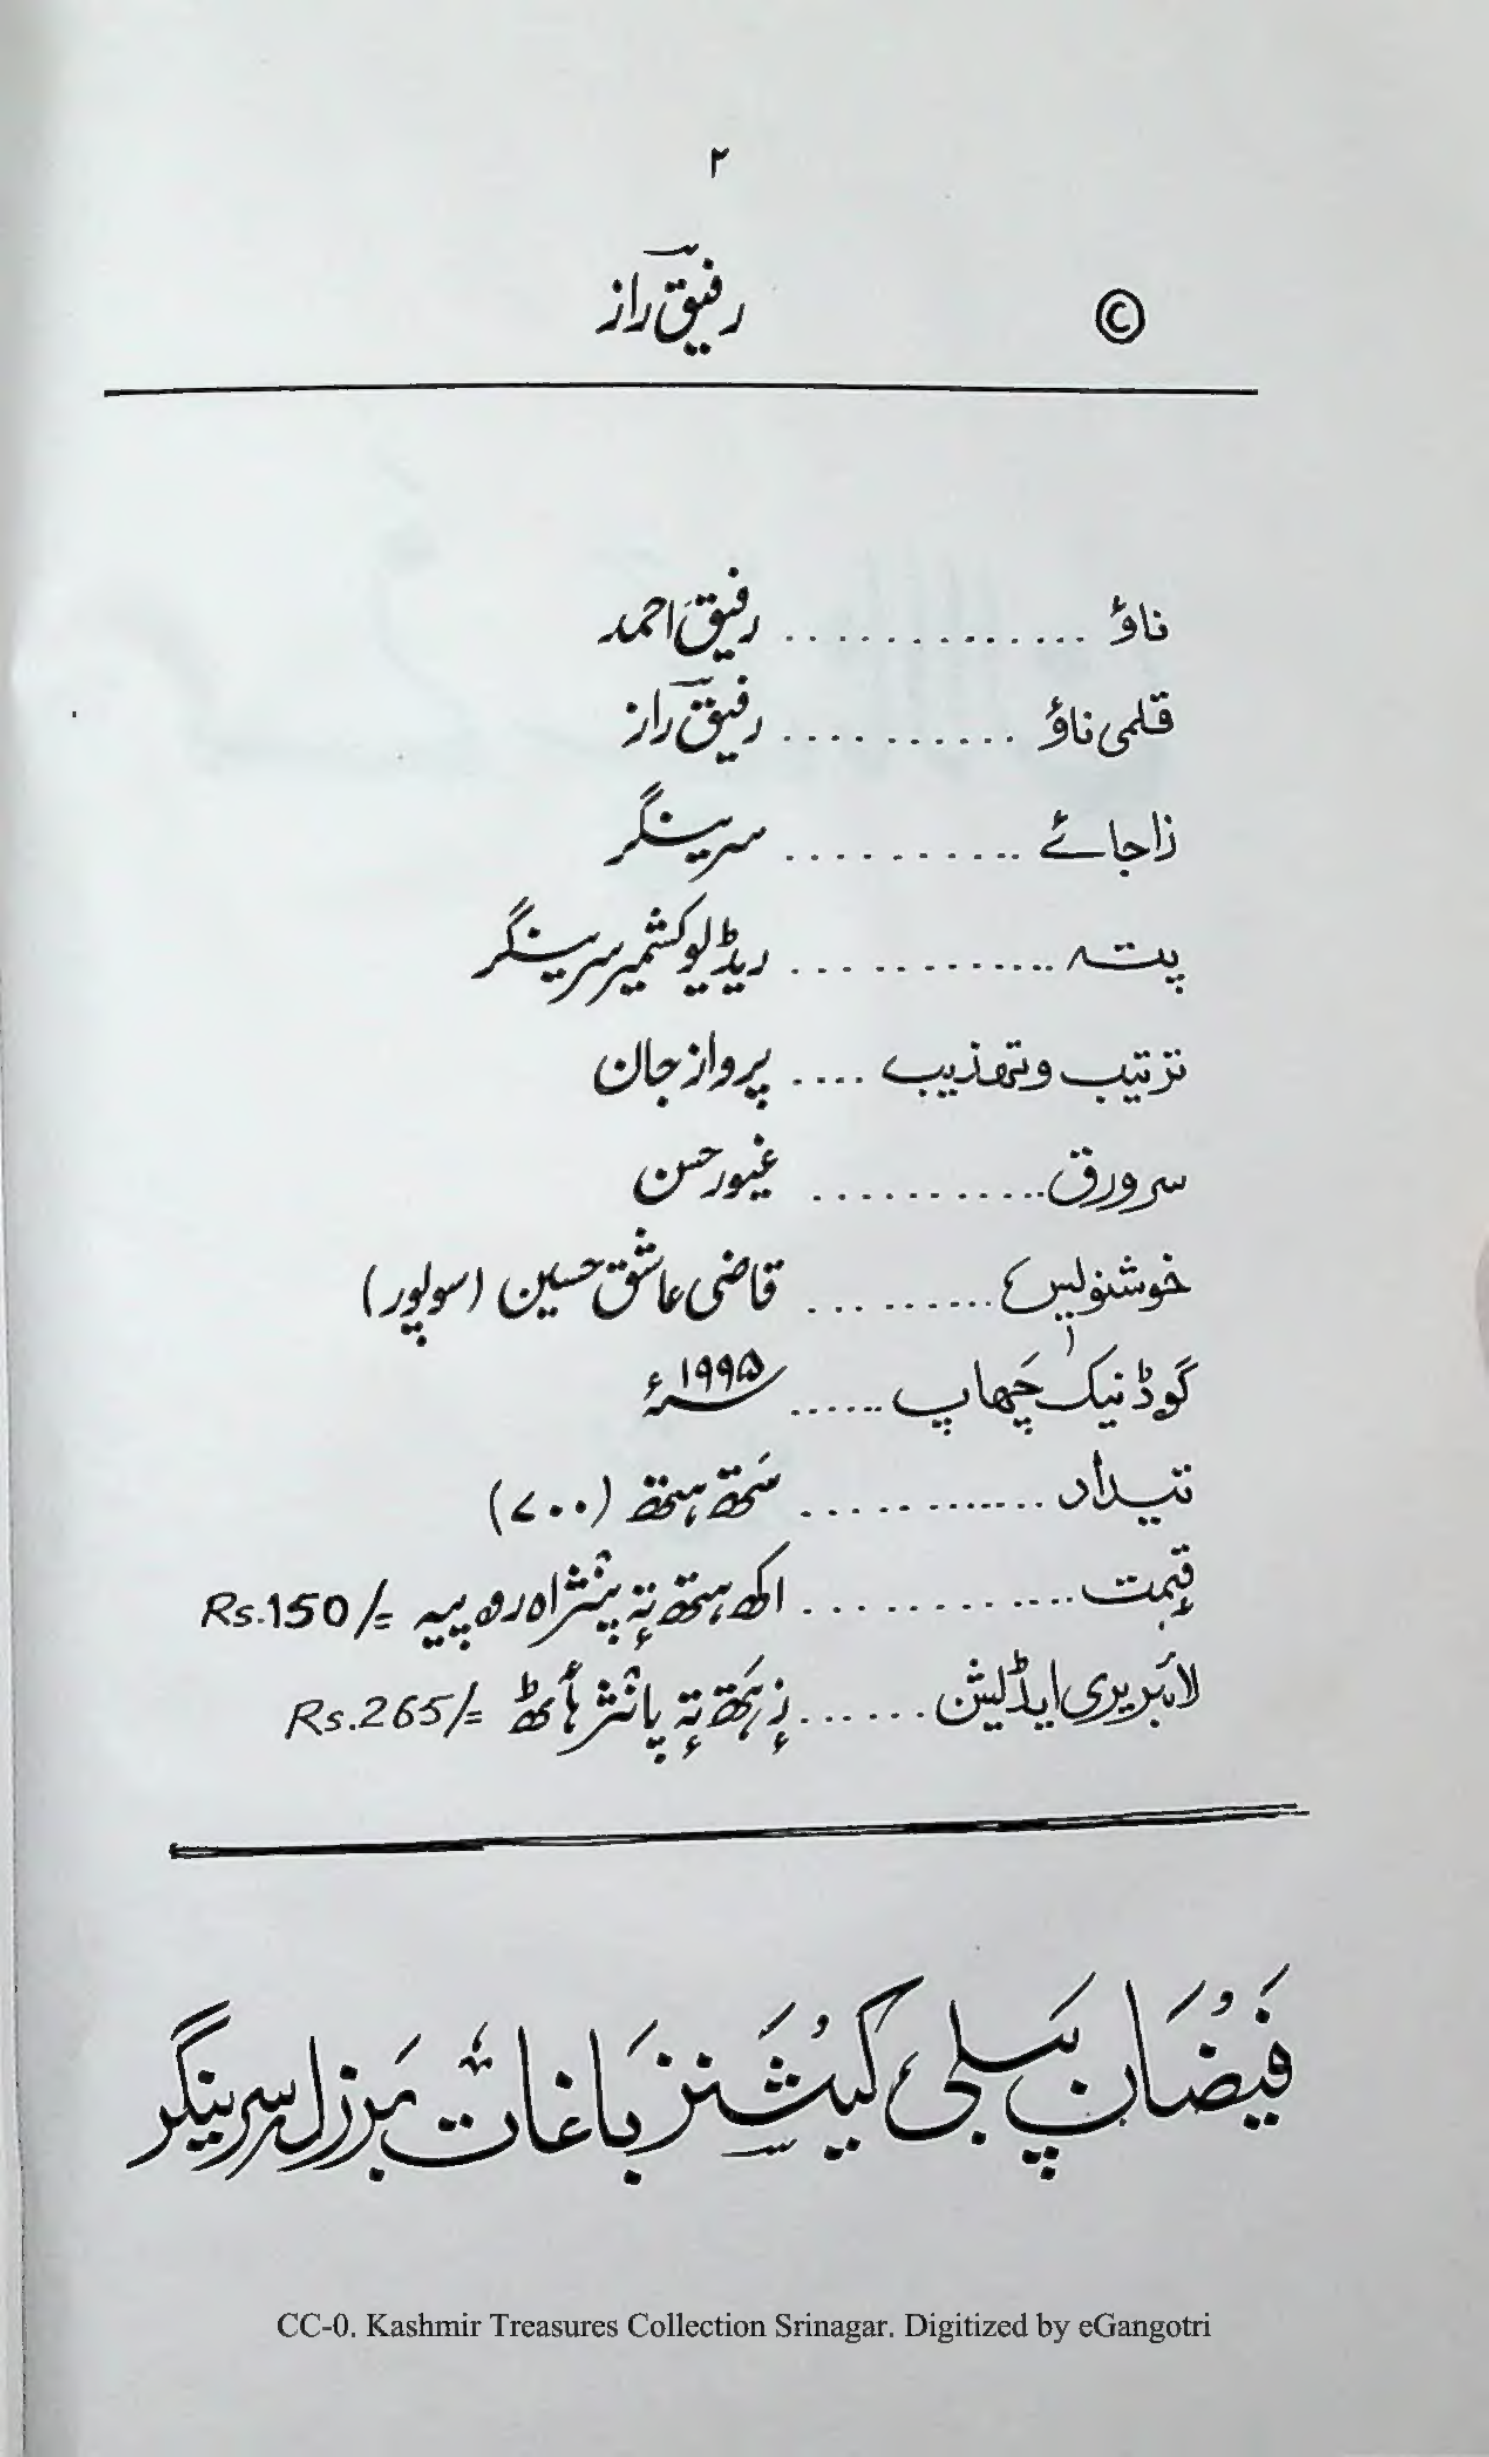 ۲
© رفیق راز
ناؤ .............. رفیق احمد
قلمی ناؤ ........... رفیق راز
زاجائے ........... سرینگر
پتہ ............. ریڈیو کشمیر سرینگر
ترتیب و تہذیب .... پرواز جان
سرورق ........... غیور حسن
خوشنویس .......... قاضی عاشق حسین (سوپور)
گۄڈنیک چھاپ ...... ۱۹۹۵ء
تیداد ............ ستھ ہتھ (۷۰۰)
قیمت ............. اکھ ہتھ تہٕ پنٛژاہ روپیہ Rs.150/=
لائبریری ایڈیشن ....... زٕ ہَتھ تہٕ پانٛژ ہٲٹھ Rs.265/=
فیضان پبلی کیشنز باغات برزل سرینگر
CC-0. Kashmir Treasures Collection Srinagar. Digitized by eGangotri